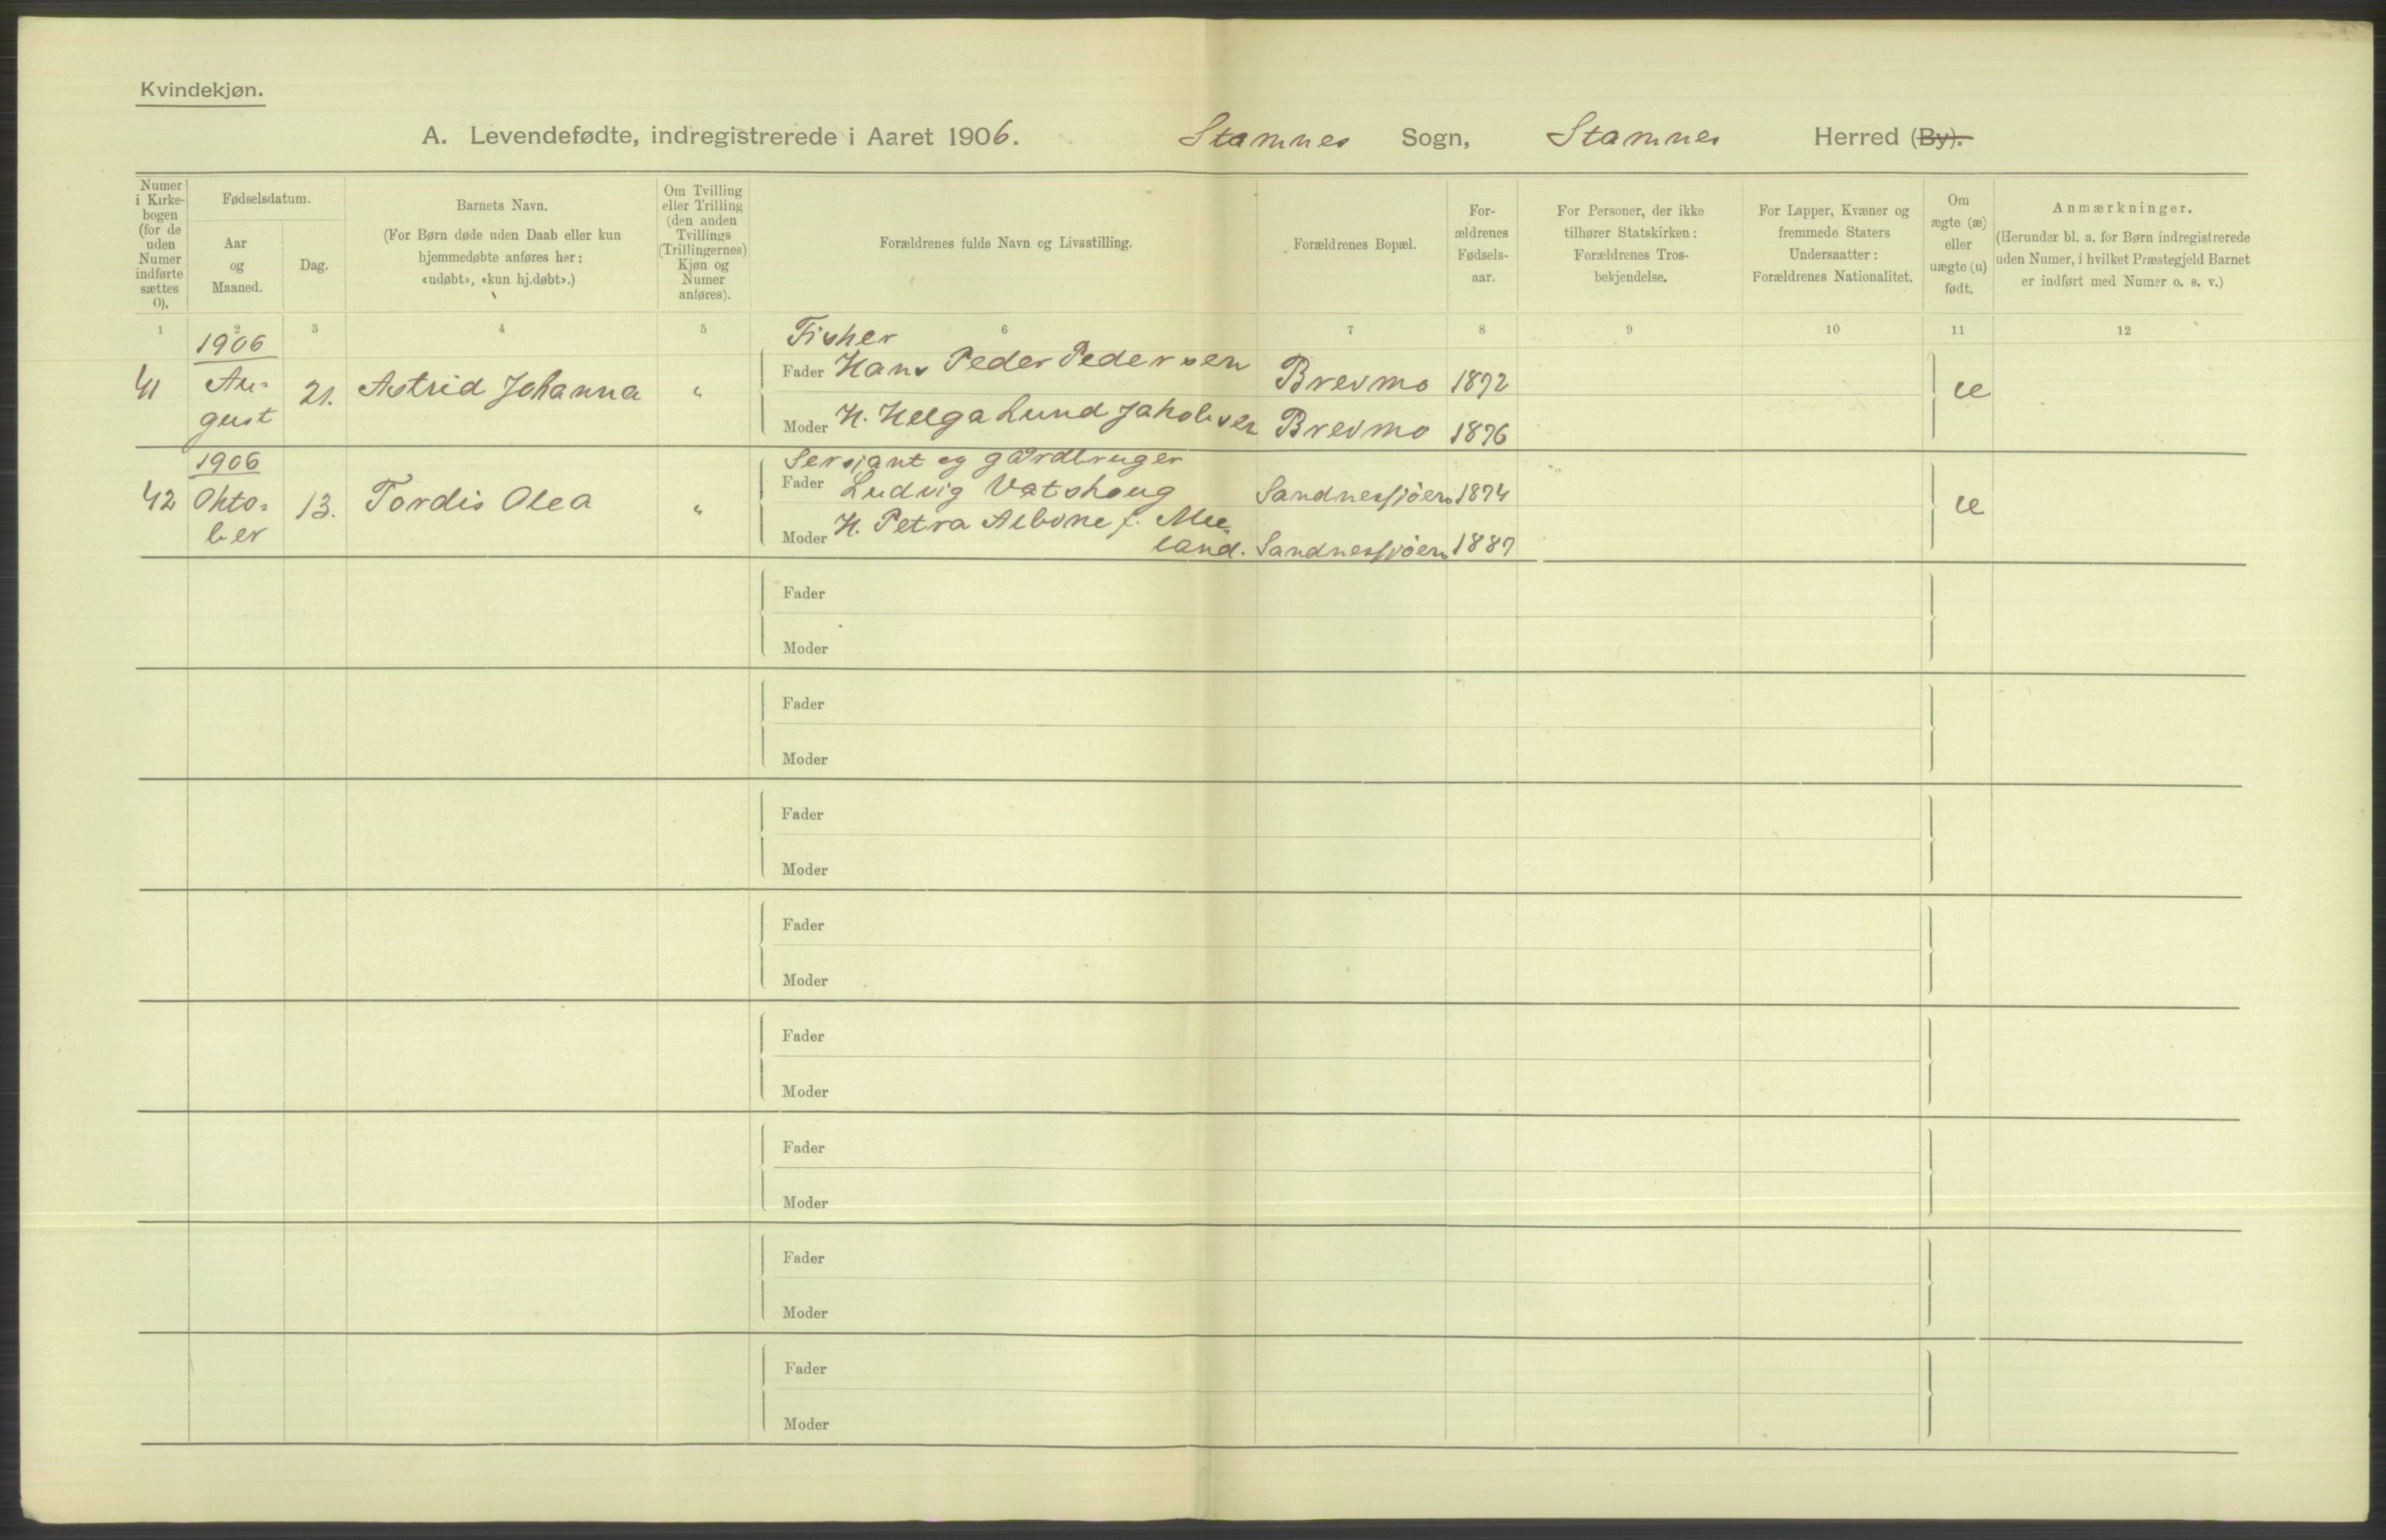 Kvindekjøn.
A. Levendefødte, indregistrerede i Aaret 1906. Stamnes Sogn, Stamnes Herred (By).
Numer
i Kirke-
bogen
(for de
uden
Numer
indførte
sættes
0).
Fødselsdatum.
Aar
og
Maaned.
Dag.
Barnets Navn.
(For Børn døde uden Daab eller kun
hjemmedøbte anføres her:
«udøbt», «kun hj.døbt».)
Om Tvilling
eller Trilling
(den anden
Tvillings
(Trillingernes)
Kjøn og
Numer
anføres).
Forældrenes fulde Navn og Livsstilling.
Forældrenes Bopæl.
For-
ældrenes
Fødsels-
aar.
For Personer, der ikke
tilhører Statskirken:
Forældrenes Tros-
bekjendelse.
For Lapper, Kvæner og
fremmede Staters
Undersaatter:
Forældrenes Nationalitet.
Om
ægte (æ)
eller
uægte (u)
født.
Anmærkninger.
(Herunder bl. a. for Børn indregistrerede
uden Numer, i hvilket Præstegjeld Barnet
er indført med Numer o. s. v.)
1 2 3 4 5 6 7 8 9 10 11 12
1906 Fisker
41 Au- 21. Astrid Johanna " Fader Hans Peder Pedersen Brevmo 1872 æ
gust Moder H. Helga Lund Jakobsen Brevmo 1876
1906 Sersjant og gårdbruger
42 Okto- 13. Tordis Olea " Fader Ludvig Vatshoug Sandnessjøen 1874 æ
ber Moder H. Petra Albine f.
land. Sandnessjøen 1887
Fader
Moder
Fader
Moder
Fader
Moder
Fader
Moder
Fader
Moder
Fader
Moder
Fader
Moder
Fader
Moder